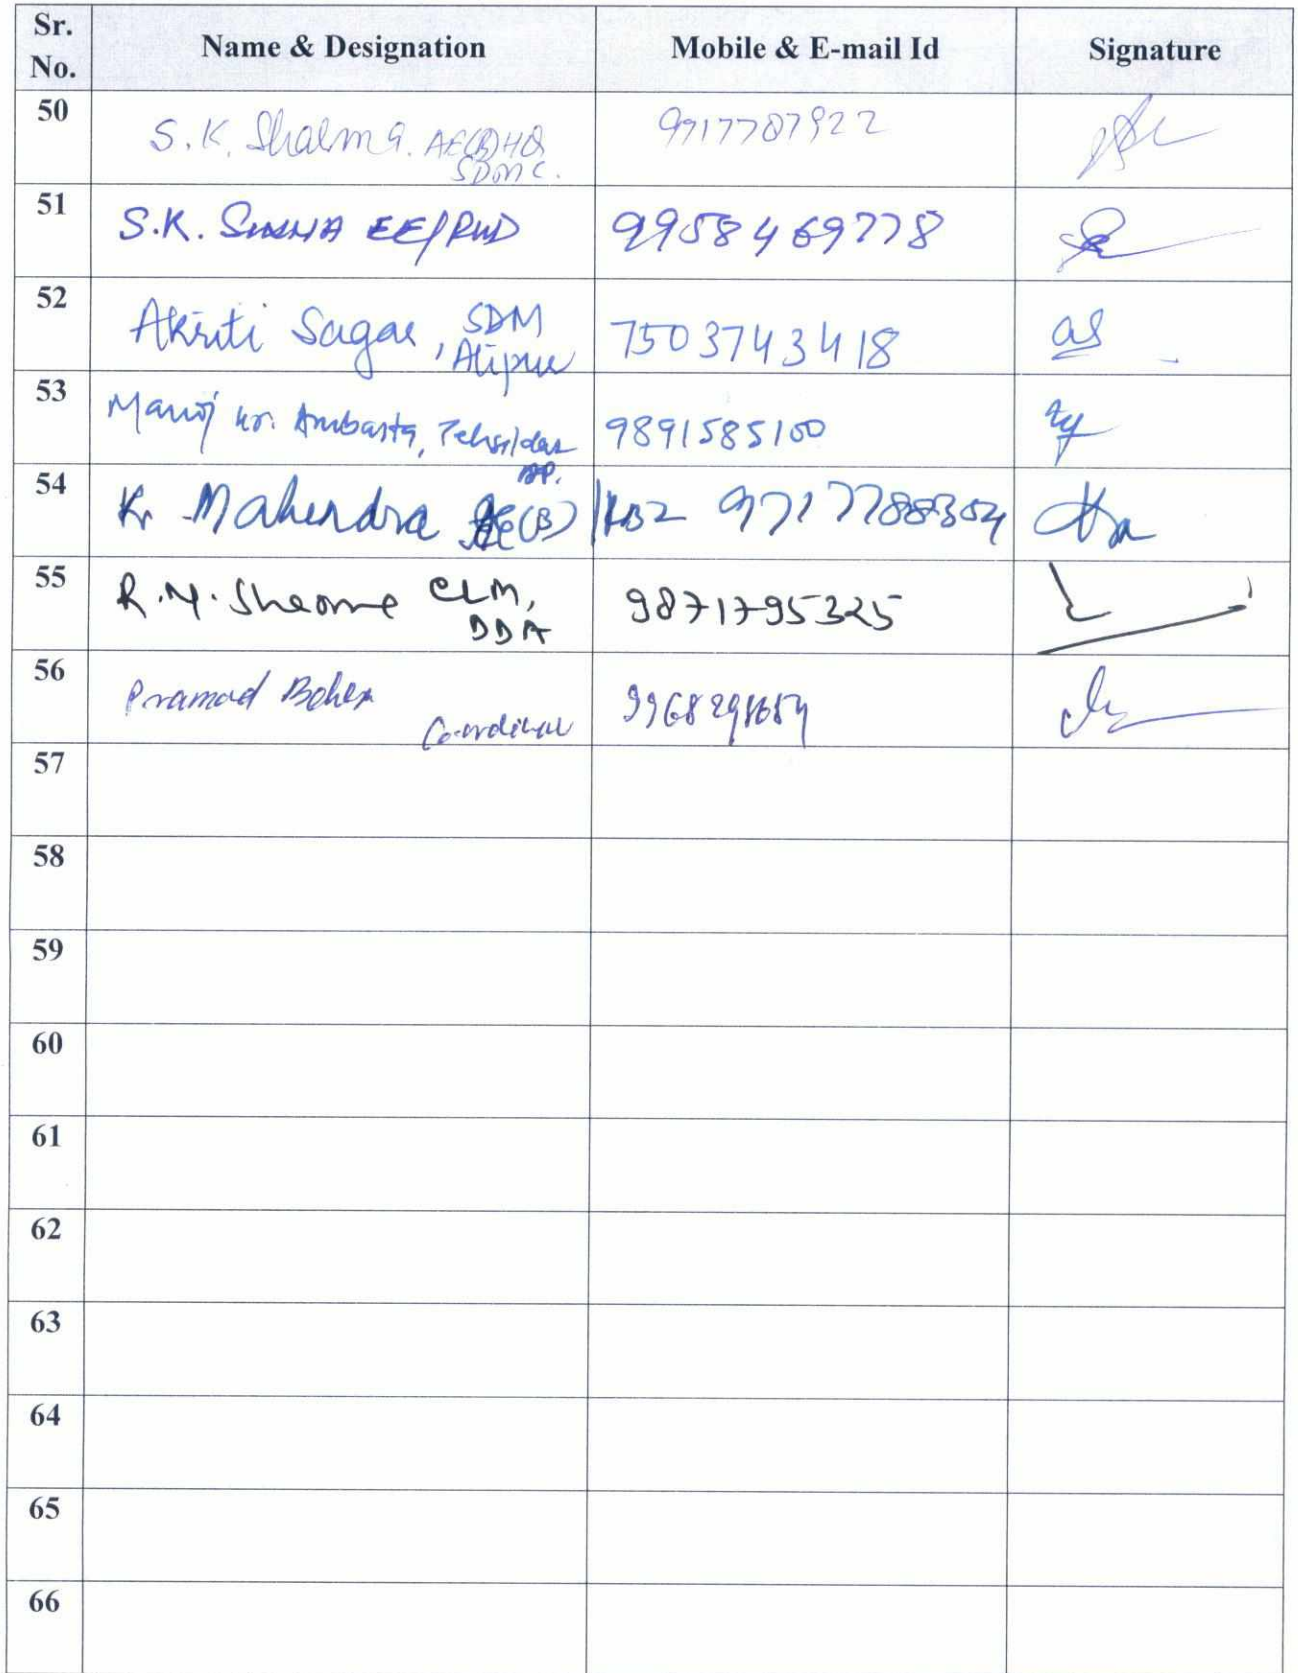 Sr. No. Name & Designation Mobile & E-mail Id Signature
50 S.K. Sharma. AE(B)HQ 9717787922
SDMC.
51 S.K. SINHA EE/PWD 9958469778
52 Akriti Sagar, SDM 7503743418 as
Alipur
53 Manoj kr. Ambasta, Tehsildar 9891585100
54 Kr Mahendra (B) 9717788304
55 R.N. Sharma CLM, 9871795325
DDA
56 Pramod
Co-ordinator
57
58
59
60
61
62
63
64
65
66